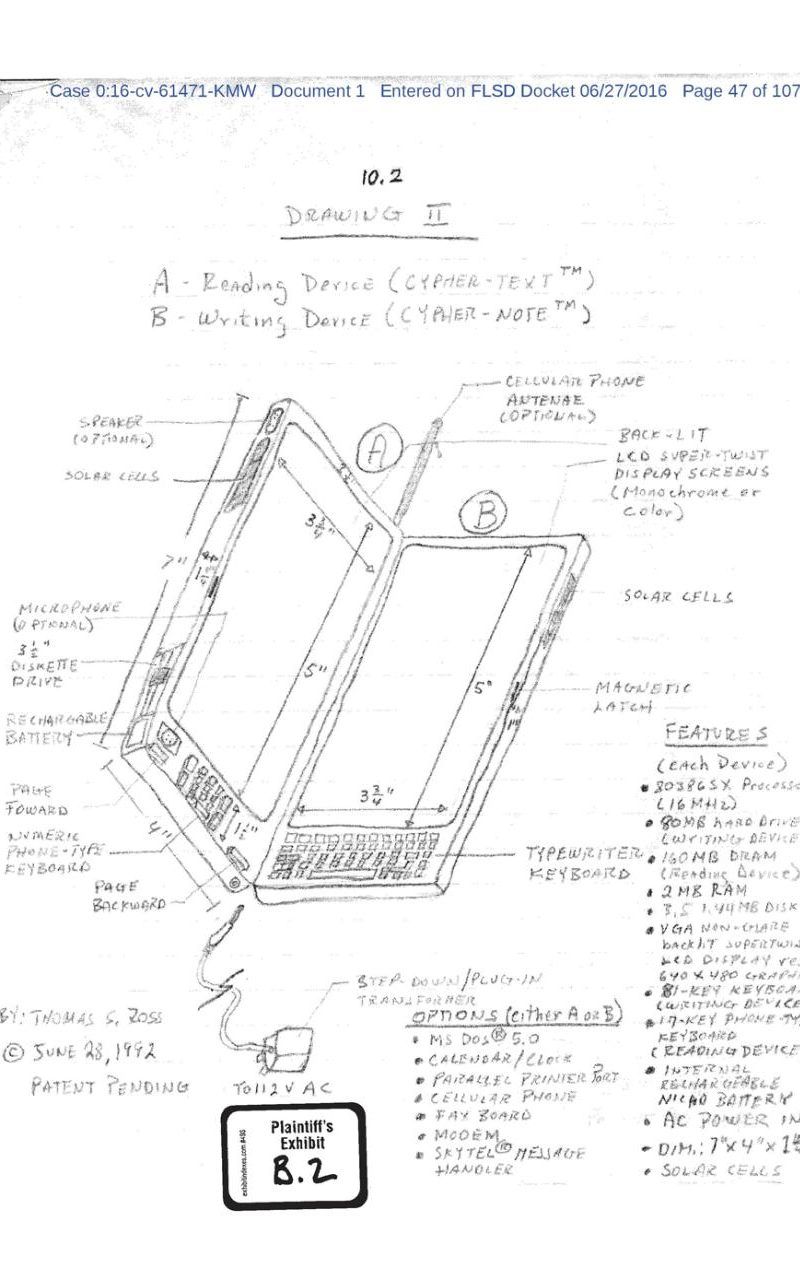 Case 0:16-cv-61471-KMW Document 1 Entered on FLSD Docket 06/27/2016 Page 47 of 107
10.2
DRAWING II
A - Reading Device (CYPHER-TEXT™)
B - Writing Device (CYPHER-NOTE™)
CELLULAR PHONE
ANTENAE
(OPTIONAL)
SPEAKER
(OPTIONAL)
SOLAR CELLS
A
B
BACK-LIT
LCD SUPER-TWIST
DISPLAY SCREENS
(Monochrome or
Color)
3 3/4"
7"
SOLAR CELLS
MICROPHONE
(OPTIONAL)
3 1/2"
DISKETTE
DRIVE
5"
5"
MAGNETIC
LATCH
RECHARGABLE
BATTERY
PAGE
FOWARD
NUMERIC
PHONE-TYPE
KEYBOARD
PAGE
BACKWARD
4"
1 1/2"
3 3/4"
TYPEWRITER
KEYBOARD
FEATURES
(Each Device)
• 80386SX Process
(16 MHz)
• 80MB HARD DRIVE
(WRITING DEVICE
• 160MB DRAM
(Reading Device)
• 2 MB RAM
• 3.5 1.44MB DISK
• VGA NON-GLARE
backlit SUPERTWI
LCD DISPLAY re
640 X 480 GRAPH
• 81-KEY KEYBOA
(WRITING DEVICE
• 17-KEY PHONE-TY
KEYBOARD
(READING DEVICE
• INTERNAL
RECHARGEABLE
NICAD BATTERY
• AC POWER IN
• DIM.: 7"X 4"X 1
• SOLAR CELLS
STEP-DOWN/PLUG-IN
TRANSFORMER
TO 112 V AC
OPTIONS (either A or B)
• MS DOS® 5.0
• CALENDAR/CLOCK
• PARALLEL PRINTER PORT
• CELLULAR PHONE
• FAX BOARD
• MODEM
• SKYTEL® MESSAGE
HANDLER
BY: THOMAS S. ROSS
© JUNE 28, 1992
PATENT PENDING
exhibitindexes.com
Plaintiff's
Exhibit
B.2